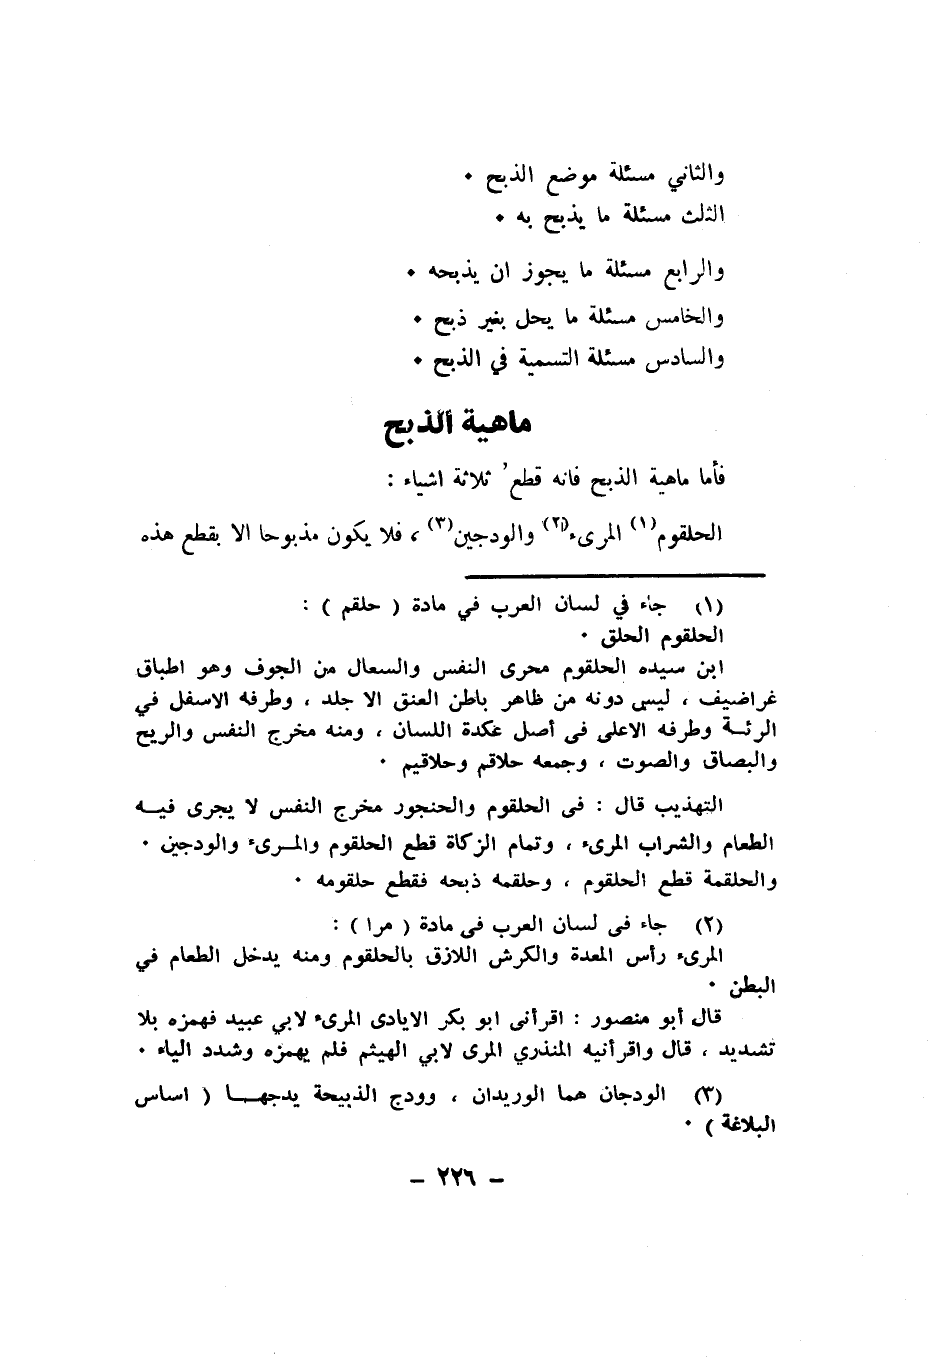 والثاني مسئلة موضع الذبح ٠
الثلث مسئلة ما يذبح به ٠
والرابع مسئلة ما يجوز ان يذبحه ٠
والخامس مسئلة ما يحل بغير ذبح ٠
والسادس مسئلة التسمية في الذبح ٠
ماهية الذبح
فأما ماهية الذبح فانه قطع' ثلاثة اشياء :
الحلقوم(١) المرىء(٢) والودجين(٣) ، فلا يكون مذبوحا الا بقطع هذه
(١) جاء في لسان العرب في مادة ( حلقم ) :
الحلقوم الحلق ٠
ابن سيده الحلقوم محرى النفس والسعال من الجوف وهو اطباق
غراضيف ، ليس دونه من ظاهر باطن العنق الا جلد ، وطرفه الاسفل في
الرئــة وطرفه الاعلى فى أصل عكدة اللسان ، ومنه مخرج النفس والريح
والبصاق والصوت ، وجمعه حلاقم وحلاقيم ٠
التهذيب قال : فى الحلقوم والحنجور مخرج النفس لا يجرى فيــه
الطعام والشراب المرىء ، وتمام الزكاة قطع الحلقوم والمــرىء والودجين ٠
والحلقمة قطع الحلقوم ، وحلقمه ذبحه فقطع حلقومه ٠
(٢) جاء فى لسان العرب فى مادة ( مرا ) :
المرىء رأس المعدة والكرش اللازق بالحلقوم ومنه يدخل الطعام في
البطن ٠
قال أبو منصور : اقرأنى ابو بكر الايادى المرىء لابي عبيد فهمزه بلا
تشديد ، قال واقرأنيه المنذري المرى لابي الهيثم فلم يهمزه وشدد الياء ٠
(٣) الودجان هما الوريدان ، وودج الذبيحة يدجهــا ( اساس
البلاغة ) ٠
– ٢٢٦ –